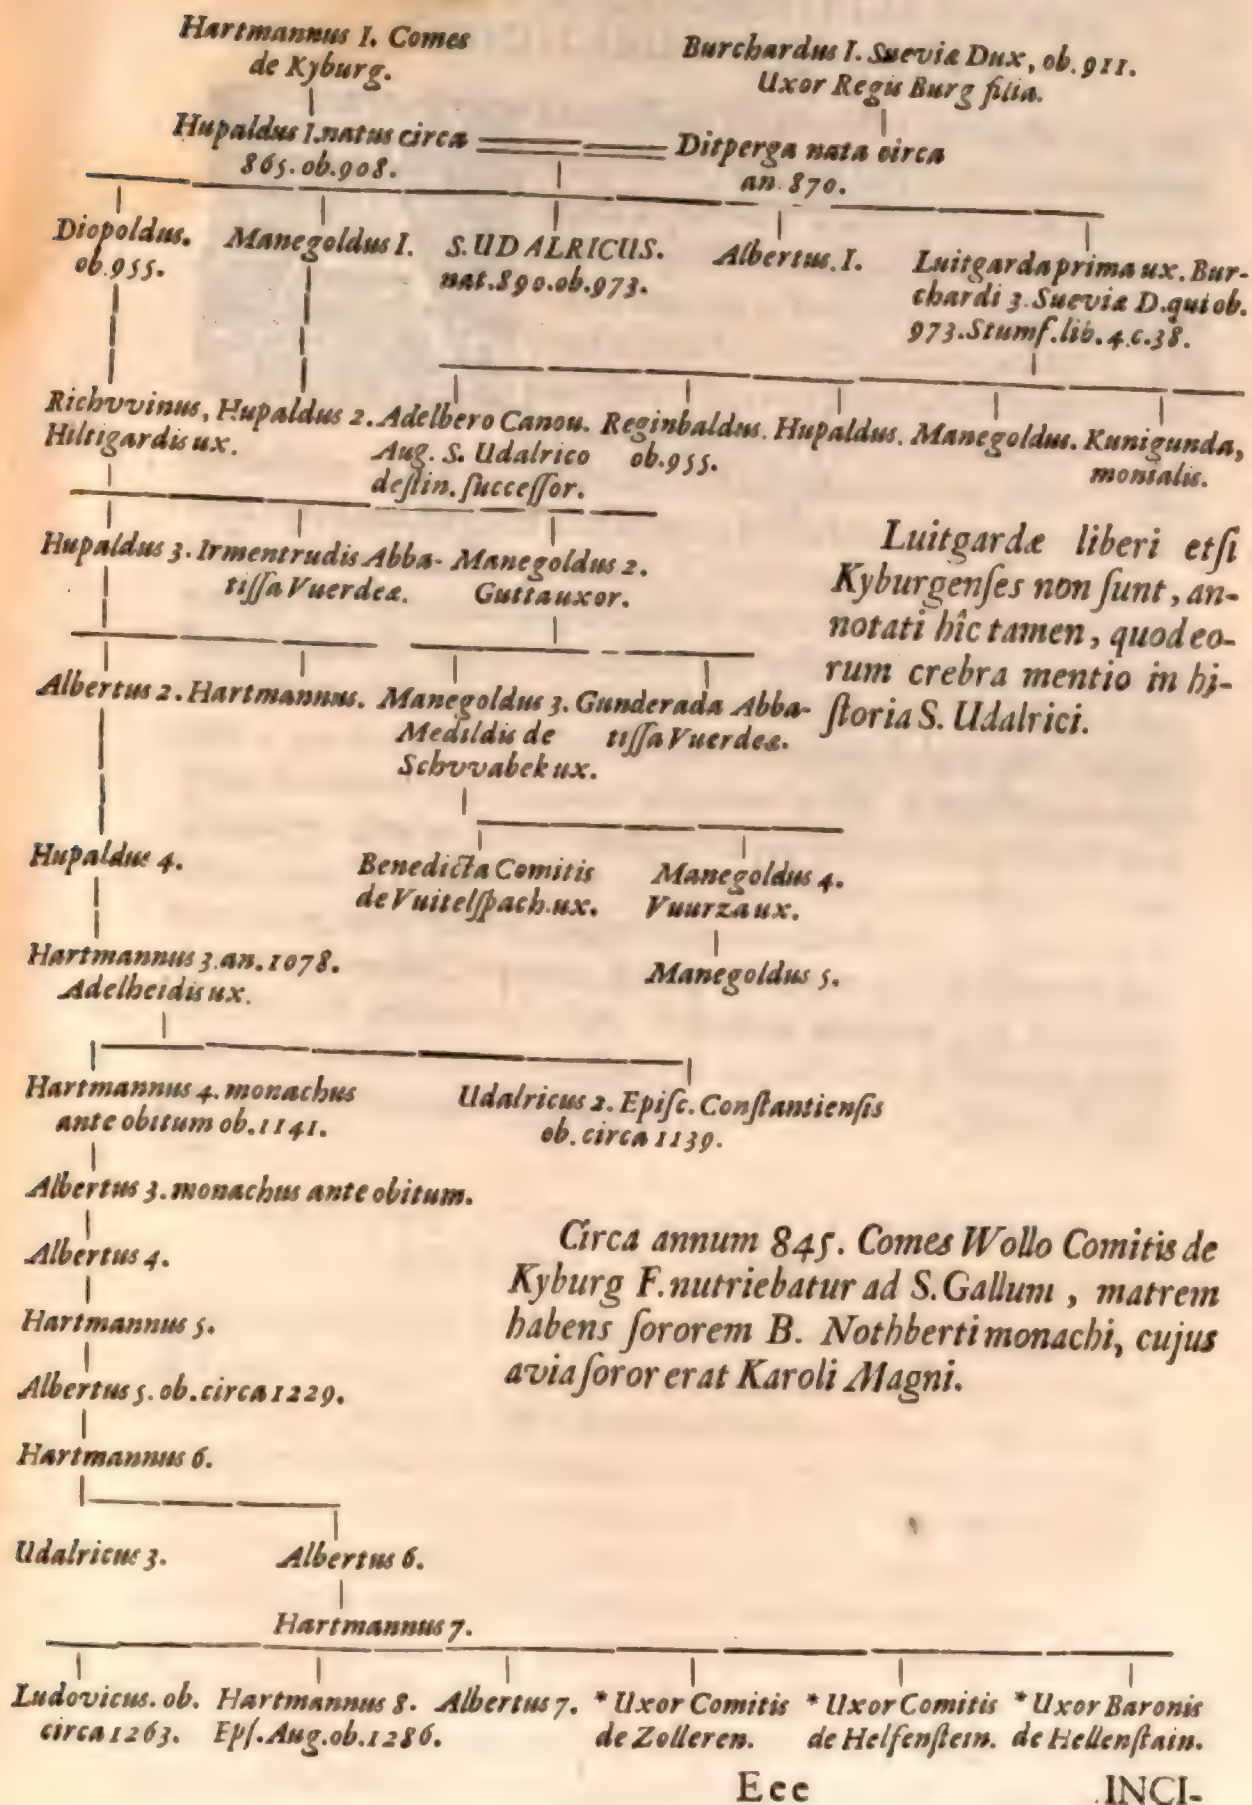 Hartmannus I. Comes
de Kyburg.
Burchardus I. Sueviæ Dux, ob. 911.
Uxor Regis Burg filia.
Hupaldus I. natus circa
865. ob. 908.
Ditperga nata circa
an. 870.
Diopoldus.
ob. 955.
Manegoldus I.
S. UDALRICUS.
nat. 890. ob. 973.
Albertus. I.
Luitgarda prima ux. Bur-
chardi 3. Sueviæ D. qui ob.
973. Stumf. lib. 4. c. 38.
Richvvinus,
Hiltigardis ux.
Hupaldus 2.
Adelbero Canon.
Aug. S. Udalrico
deſtin. ſucceſſor.
Reginbaldus.
ob. 955.
Hupaldus.
Manegoldus.
Kunigunda,
monialis.
Hupaldus 3.
Irmentrudis Abba-
tiſſa Vuerdeæ.
Manegoldus 2.
Gutta uxor.
Luitgardæ liberi etſi
Kyburgenſes non ſunt, an-
notati hîc tamen, quod eo-
rum crebra mentio in hi-
ſtoria S. Udalrici.
Albertus 2.
Hartmannus.
Manegoldus 3.
Medildis de
Schvvabek ux.
Gunderada Abba-
tiſſa Vuerdeæ.
Hupaldus 4.
Benedicta Comitis
de Vuitelſpach. ux.
Manegoldus 4.
Vuurza ux.
Hartmannus 3. an. 1078.
Adelheidis ux.
Manegoldus 5.
Hartmannus 4. monachus
ante obitum ob. 1141.
Udalricus 2. Epiſc. Conſtantienſis
ob. circa 1139.
Albertus 3. monachus ante obitum.
Albertus 4.
Hartmannus 5.
Albertus 5. ob. circa 1229.
Hartmannus 6.
Circa annum 845. Comes Wollo Comitis de
Kyburg F. nutriebatur ad S. Gallum, matrem
habens ſororem B. Nothberti monachi, cujus
avia ſoror erat Karoli Magni.
Udalricus 3.
Albertus 6.
Hartmannus 7.
Ludovicus. ob.
circa 1263.
Hartmannus 8.
Epſ. Aug. ob. 1286.
Albertus 7.
* Uxor Comitis
de Zolleren.
* Uxor Comitis
de Helfenſtein.
* Uxor Baronis
de Hellenſtain.
Eee
INCI-